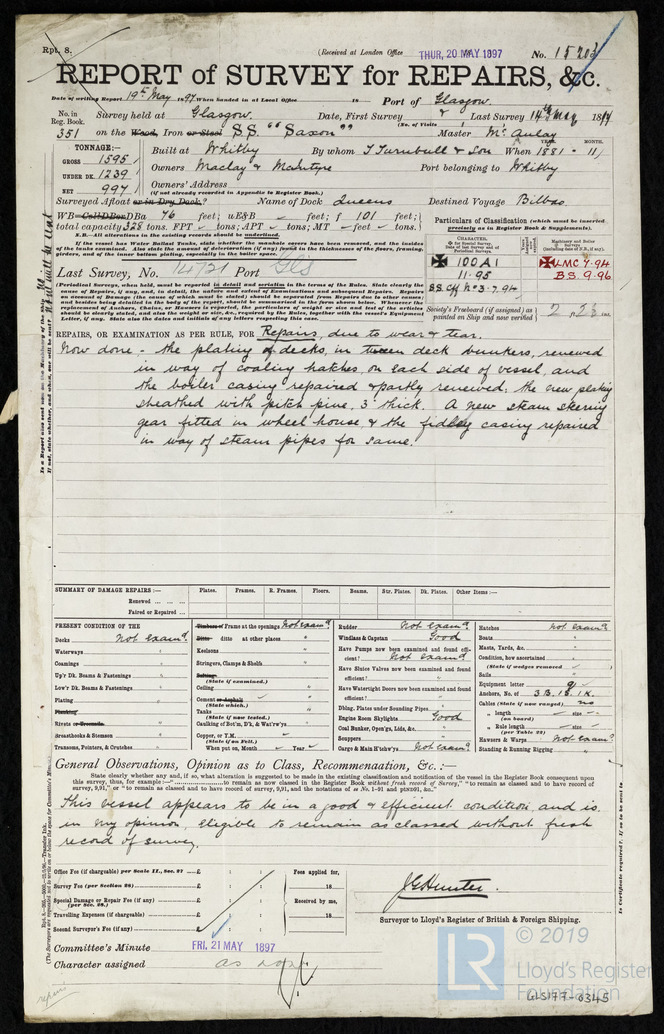 Rpt. 8.
(Received at London Office THUR, 20 MAY 1897 No. 15703
REPORT of SURVEY for REPAIRS, &c.
Date of writing Report 19th May 1897 When handed in at Local Office 18 Port of Glasgow.
No. in Reg. Book. Survey held at Glasgow. Date, First Survey & Last Survey 14th May 1897
(No. of Visits
351 on the Wood, Iron or Steel S.S. "Saxon" Master McAulay
TONNAGE:— Built at Whitby By whom T Turnbull & Son When 1881 - 11
YEAR. MONTH.
GROSS 1595 Owners Maclay & McIntyre Port belonging to Whitby
UNDER DK. 1239 Owners' Address
NET 997 (if not already recorded in Appendix to Register Book.)
Surveyed Afloat or in Dry Dock? Name of Dock Queens Destined Voyage Bilbao
WB=CellDBorDBa 76 feet; uE&B feet; f 101 feet;
total capacity 328 tons. FPT tons; APT tons; MT feet tons.
N.B.—All alterations in the existing records should be underlined.
If the vessel has Water Ballast Tanks, state whether the manhole covers have been removed, and the insides
of the tanks examined. Also state the amount of deterioration (if any) found in the thicknesses of the floors, framing,
girders, and of the inner bottom plating, especially in the boiler space.
Particulars of Classification (which must be inserted
precisely as in Register Book & Supplements).
CHARACTER.
100A1
11.95
S.S. Gff No 3-7.94
LMC 7-94
B.S. 9.96
Last Survey, No. 14721 Port Gls
(Periodical Surveys, when held, must be reported in detail and seriatim in the terms of the Rules. State clearly the
cause of Repairs, if any, and, in detail, the nature and extent of Examinations and subsequent Repairs. Repairs
on account of Damage (the cause of which must be stated) should be separated from Repairs due to other causes;
and besides being detailed in the body of the report, should be summarised in the form shown below.
Society's Freeboard (if assigned) as
painted on Ship and now verified
REPAIRS, OR EXAMINATION AS PER RULE, FOR Repairs, due to wear & tear.
Now done - the plating of decks, in tween deck bunkers, renewed
in way of coaling hatches, on each side of vessel, and
the boiler casing repaired & partly renewed; the new plating
sheathed with pitch pine, 3" thick. A new steam steering
gear fitted in wheel house & the fidley casing repaired
in way of steam pipes for same.
SUMMARY OF DAMAGE REPAIRS:— Plates. Frames. R. Frames. Floors. Beams. Str. Plates. Dk. Plates. Other Items:—
Renewed ... ... ...
Faired or Repaired
PRESENT CONDITION OF THE
Decks Not examd.
Waterways "
Coamings "
Up'r Dk. Beams & Fastenings "
Low'r Dk. Beams & Fastenings "
Plating "
Planking
Rivets or Treenails. "
Breasthooks & Stemson "
Transoms, Pointers, & Crutches "
Timbers or Frame at the openings Not examd.
Ditto ditto at other places "
Keelsons "
Stringers, Clamps & Shelfs "
Salting
(State if examined.)
Ceiling "
Cement or Asphalt
(State which.)
Tanks "
(State if now tested.)
Caulking of Bot'm, D'k, & Wat'rw'ys "
Copper, or Y.M.
(State if on Felt.)
When put on, Month Year
Rudder Not examd.
Windlass & Capstan Good
Have Pumps now been examined and found effi-
cient? Not examd.
Have Sluice Valves now been examined and found
efficient? "
Have Watertight Doors now been examined and found
efficient? "
Dblng. Plates under Sounding Pipes "
Engine Room Skylights Good
Coal Bunker, Open'gs, Lids, &c. "
Scuppers "
Cargo & Main H'tchw'ys Not examd.
Hatches Not examd.
Boats "
Masts, Yards, &c. "
Condition, how ascertained
(State if wedges removed
Sails "
Equipment letter
Anchors, No. of 3B. 1S. 1K.
Cables (State if now ranged) no
" length size
(on board)
" Rule length size
(per Table 22)
Hawsers & Warps Not examd.
Standing & Running Rigging "
General Observations, Opinion as to Class, Recommendation, &c. :—
State clearly whether any and, if so, what alteration is suggested to be made in the existing classification and notification of the vessel in the Register Book consequent upon
this survey, thus, for example:—" to remain as now classed in the Register Book without fresh record of Survey," "to remain as classed and to have record of
survey, 9,91," or "to remain as classed and to have record of survey, 9,91, and the notations of
This vessel appears to be in a good & efficient condition, and is,
in my opinion, eligible to remain as classed without fresh
record of survey.
Office Fee (if chargeable) per Scale II., Sec. 27 £ : : Fees applied for,
Survey Fee (per Section 28) £ : : 18
Special Damage or Repair Fee (if any) £ : : Received by me,
(per Sec. 28.)
Travelling Expenses (if chargeable) £ : : 18
Second Surveyor's Fee (if any) £
J G Hunter.
Surveyor to Lloyd's Register of British & Foreign Shipping.
Committee's Minute FRI. 21 MAY 1897
Character assigned as now
repairs
LR
© 2019
Lloyd's Register
Foundation
GLS177-0345